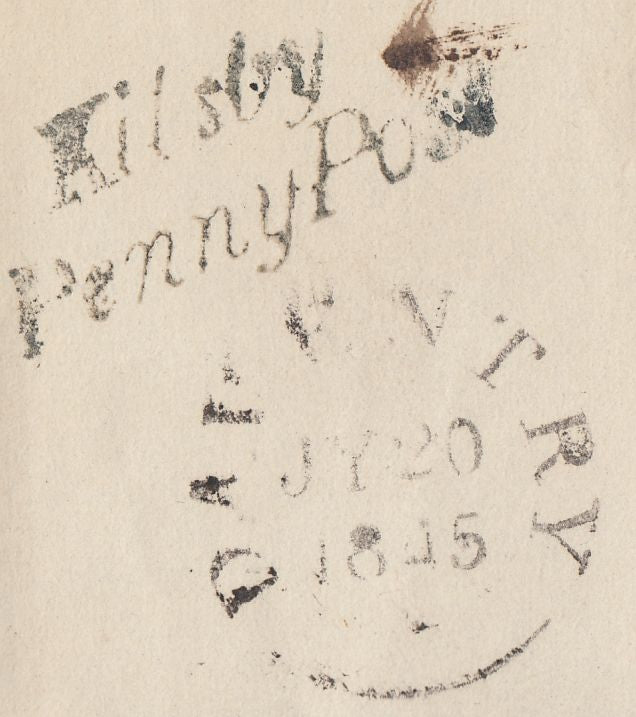 Kilsby
Penny Post
DAVENTRY
JY 20
1845